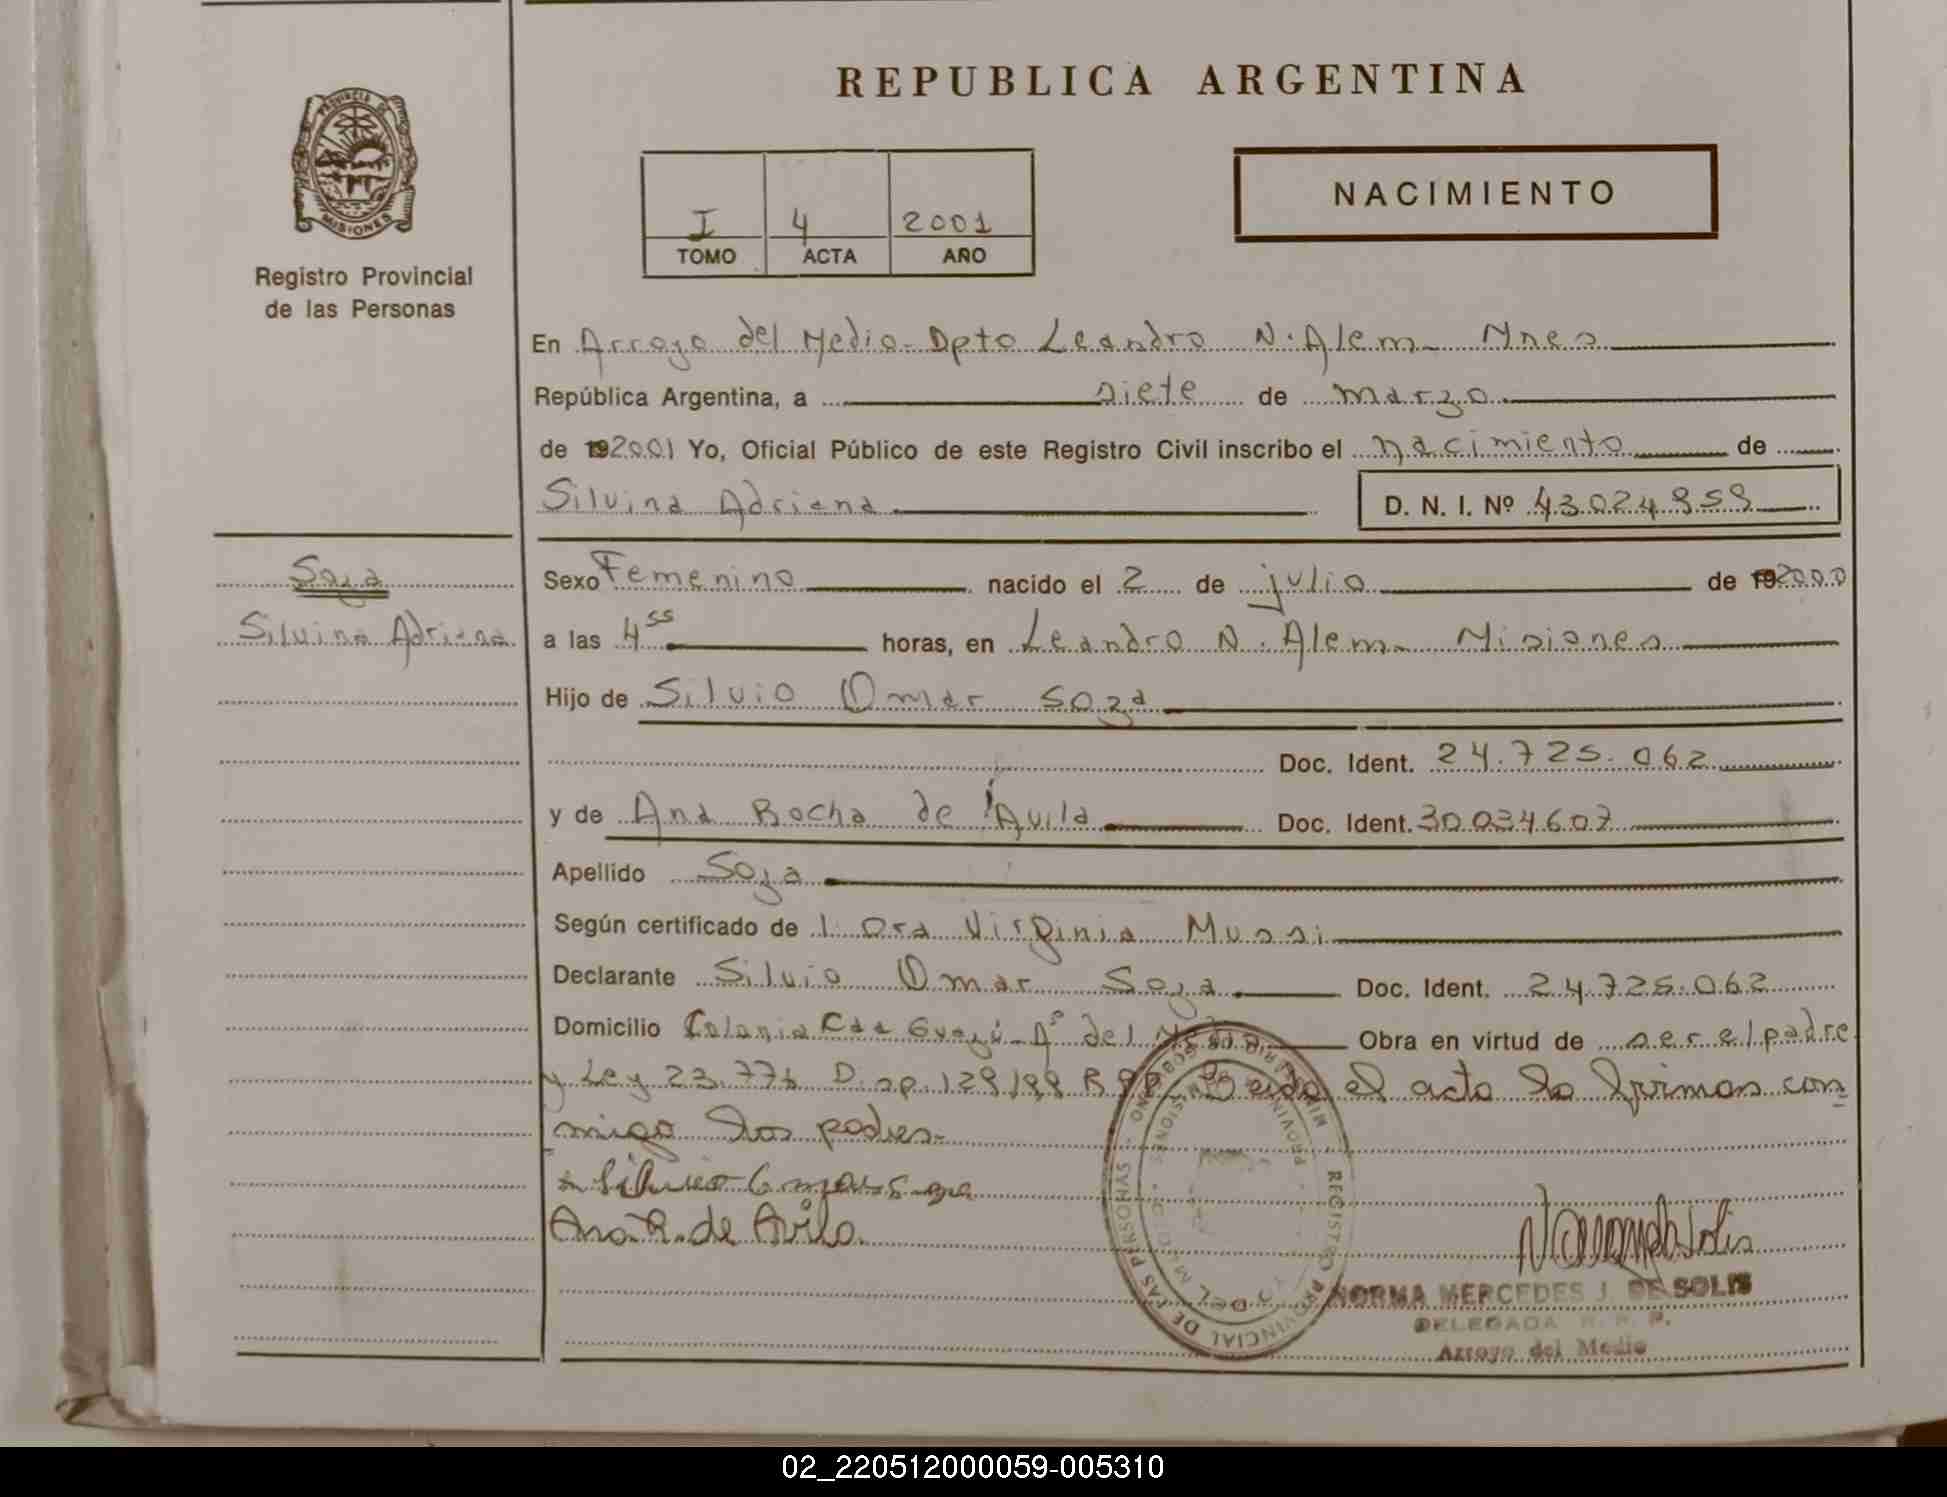 REPUBLICA ARGENTINA
PROVINCIA DE
MISIONES
Registro Provincial
de las Personas
I 4 2001
TOMO ACTA AÑO
NACIMIENTO
En Arroyo del Medio - Dpto Leandro N. Alem - Mnes
República Argentina, a siete de marzo
de 192001 Yo, Oficial Público de este Registro Civil inscribo el nacimiento de
Silvina Adriana D. N. I. Nº 43024959
Soza
Silvina Adriana
Sexo Femenino nacido el 2 de julio de 192000
a las 4 55 horas, en Leandro N. Alem - Misiones
Hijo de Silvio Omar Soza
Doc. Ident. 24.725.062
y de Ana Rocha de Avila Doc. Ident. 30034607
Apellido Soza
Según certificado de Virginia Mussi
Declarante Silvio Omar Soza Doc. Ident. 24.725.062
Domicilio Colonia Guazú - Aº del Obra en virtud de ser el padre
y Ley 23.776 Disp. 129/99 RPP Leida el acta la firman con
migo los padres.
Silvio Omar Soza
Ana R. de Avila
REGISTRO PROVINCIAL DE LAS PERSONAS
NORMA MERCEDES J. DE SOLIS
DELEGADA R. P. P.
Arroyo del Medio
02_220512000059-005310